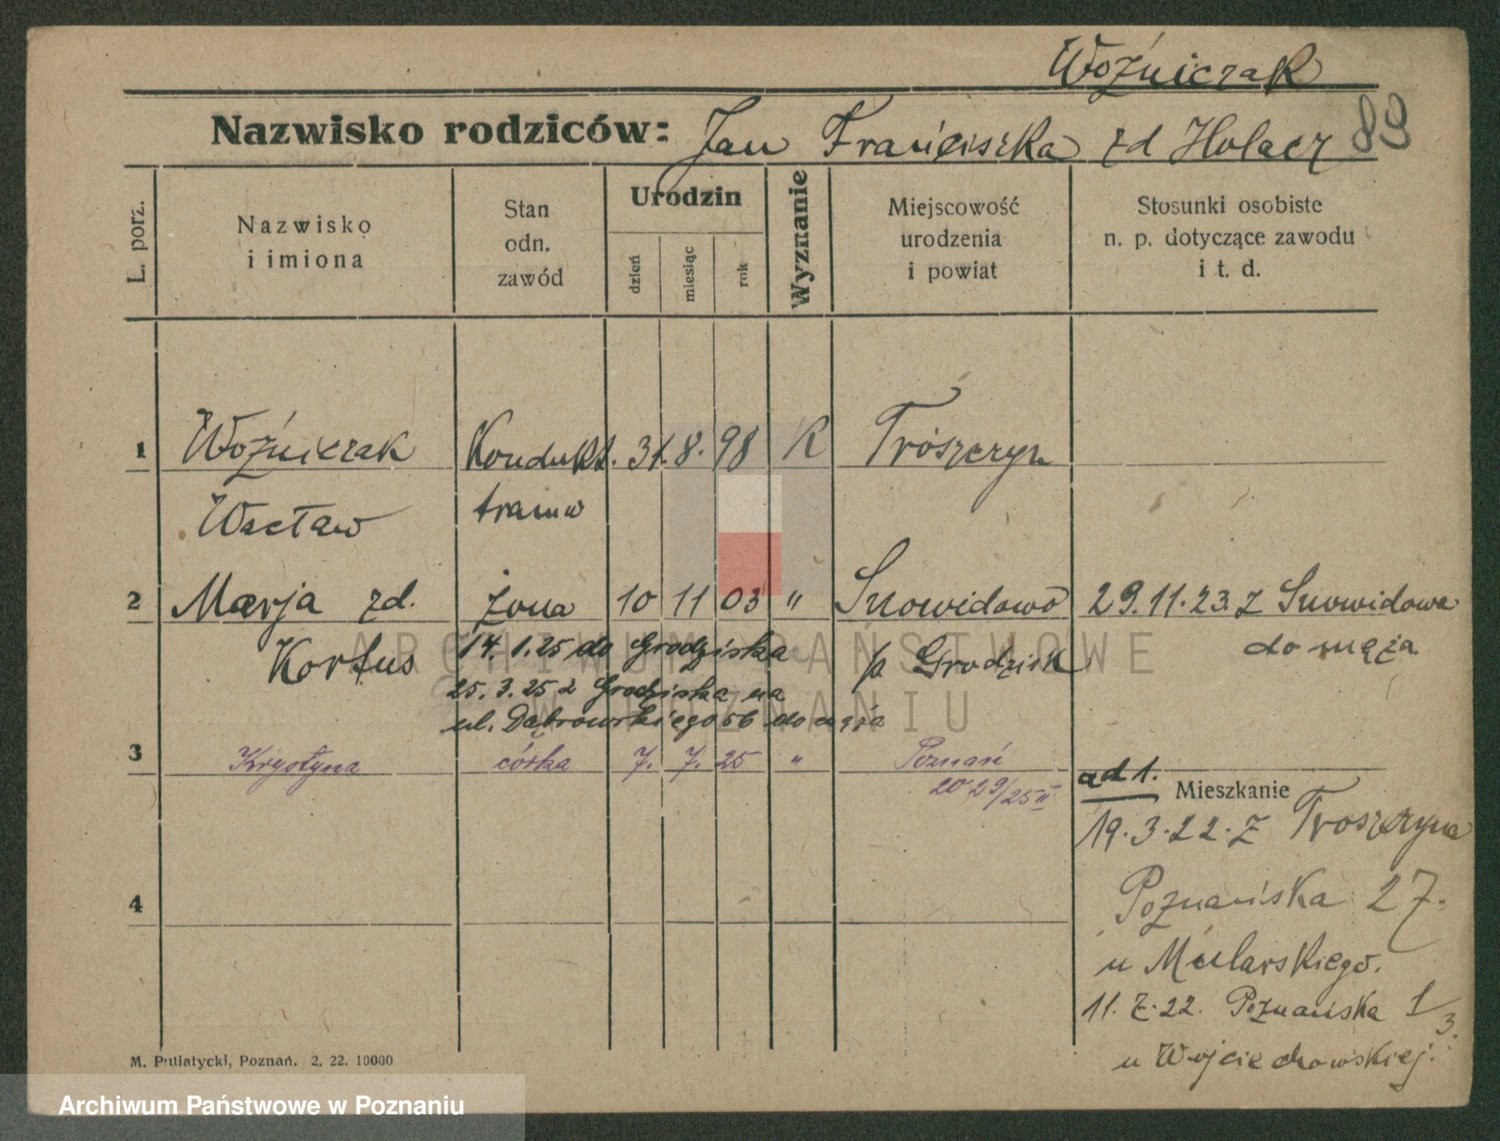 Woźniczak
Nazwisko rodziców: Jan Franciszka zd Holacz
89
L. porz.
Nazwisko
i imiona
Stan
odn.
zawód
Urodzin
dzień
miesiąc
rok
Wyznanie
Miejscowość
urodzenia
i powiat
Stosunki osobiste
n. p. dotyczące zawodu
i t. d.
1 Woźniczak Kondukt. 31. 8. 98 R Trószczyn
Wacław tramw
2 Marja zd. żona 10 11 03 " Snowidowo 29.11.23. z Snowidowa
Kortus 14. 1.25 do Grodziska p Grodzisk do męża
25. 3. 25 z Grodziska na
ul. Dąbrowskiego 56 do męża
3 Krystyna córka 7. 7. 25 " Poznań
2029/25 II
ad 1. Mieszkanie
19.3.22. z Troszczyna
Poznańska 27.
u Mularskiego.
4
11. 7. 22. Poznańska 1/3.
u Wojciechowskiej.
M. Putiatycki, Poznań. 2, 22. 10000
ARCHIWUM PAŃSTWOWE
W POZNANIU
Archiwum Państwowe w Poznaniu